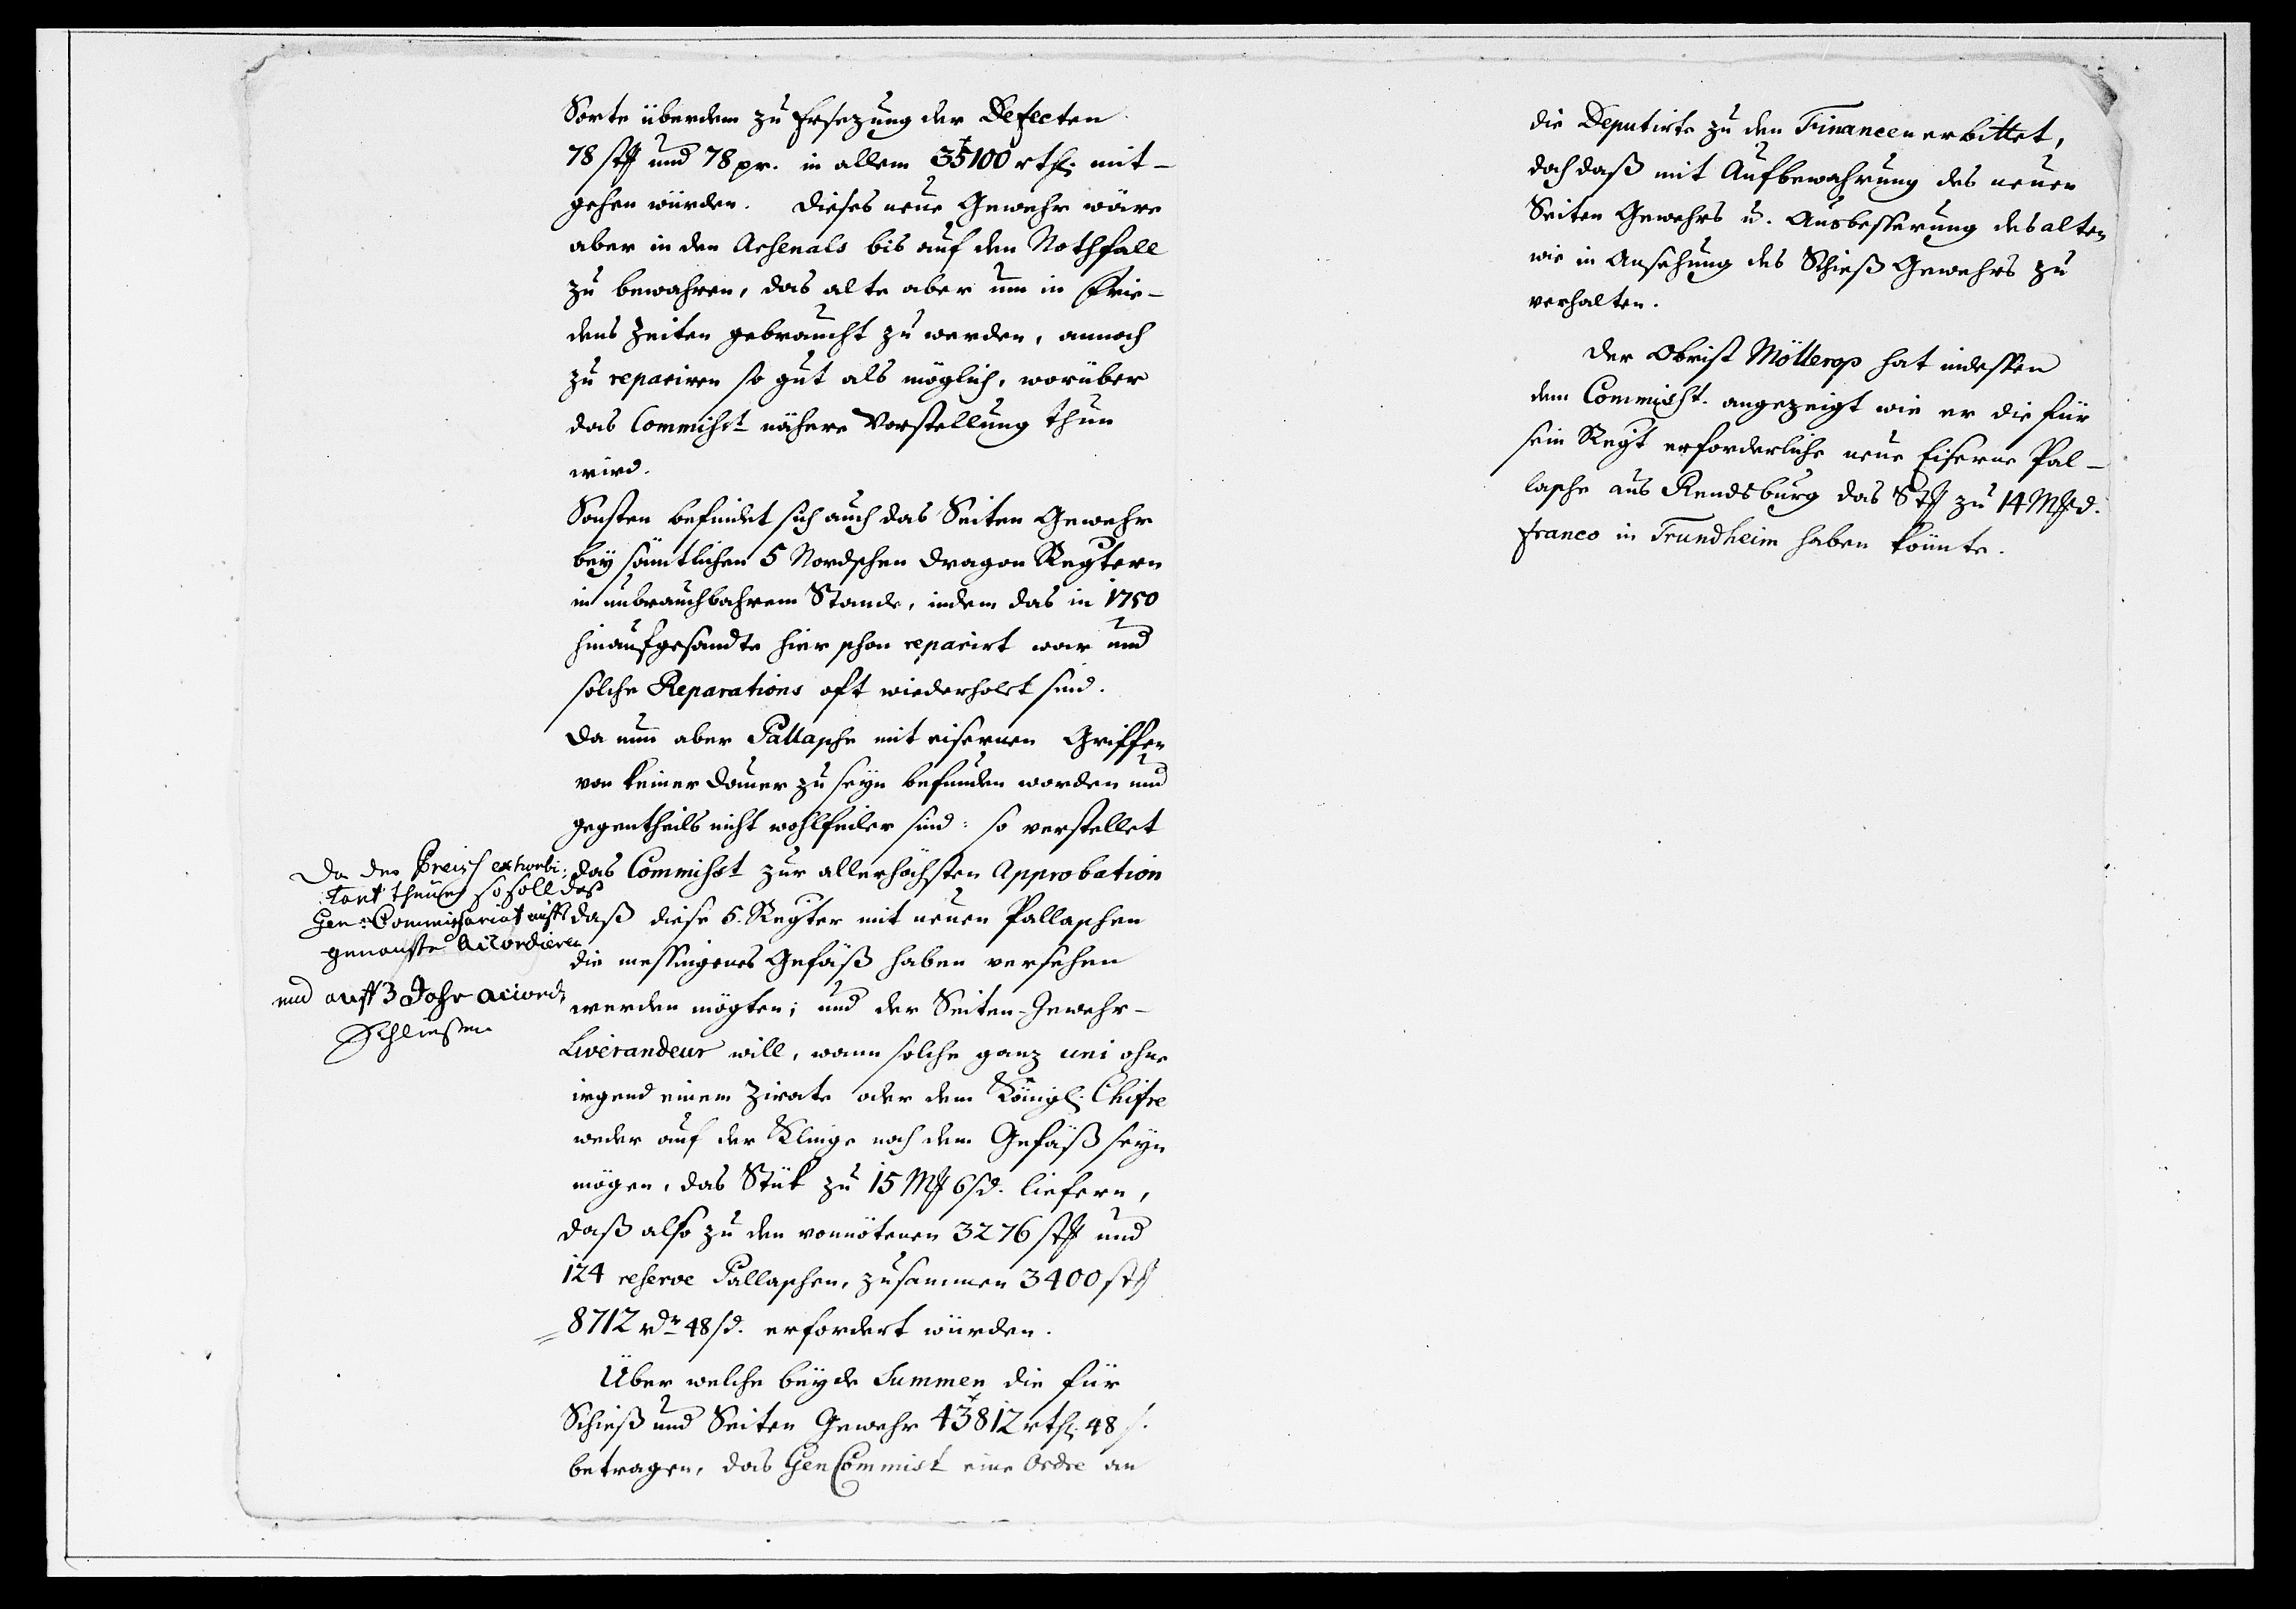 Sorte überdem zu Ersezung der Defecten
78 st und 78 pr. in allem 35100 rthl. mit-
gehen würden. Dieses neue Gewehr wäre
aber in den Arsenals bis auf den Nothfall
zu bewahren, das alte aber um in Frie-
dens Zeiten gebraucht zu werden, annoch
zu repariren so gut als möglich, worüber
das Commisst nähere Vorstellung thun
wird.
Sonsten befindet sich auch das Seiten Gewehr
bey sämtlichen 5 Nordschen Dragon Regtern
in unbrauchbahrem Stande, indem das in 1750
hinaufgesandte hier schon reparirt war und
solche Reparations oft wiederholt sind.
Da nun aber Pallasche mit eisernen Griffen
von keiner Dauer zu seyn befunden worden und
gegentheils nicht wohlfeiler sind: so verstellet
das Commisst zur allerhöchsten Approbation
daß diese 5. Regter mit neuen Pallaschen
die messingenes Gefäß haben versehen
werden mögten; und der Seiten-Gewehr-
Liverandeur will, wann solche ganz uni ohne
irgend einem Zirate oder dem Königl. Chifre
weder auf der Klinge noch dem Gefäß seyn
mögen, das Stük zu 15 M 6 sd. liefern,
daß also zu den vonnötenen 3276 st und
124 reserve Pallaschen, zusammen 3400 st
8712 rdr 48 sd. erfordert würden.
Über welche beyde Summen die für
Schieß und Seiten Gewehr 43812 rthl. 48 s.
betragen, das Gen Commist eine Ordre an
Da der Preiss exhorbi-
tant theuer so soll das
Gen: Commissariat aufs
genauste accordieren
und auff 3 Jahr accord
Schliessen
die Deputirte zu den Financen erbittet,
doch daß mit Aufbewahrung des neuen
Seiten Gewehrs u. Ausbesserung des alten
wie in Ansehung des Schieß Gewehrs zu
verhalten.
Der Obrist Möllerop hat indessen
dem Commisst. angezeigt wie er die für
sein Regt erforderliche neue Eiserne Pal-
lasche aus Rendsburg das St zu 14 M d.
franco in Trundheim haben könnte.